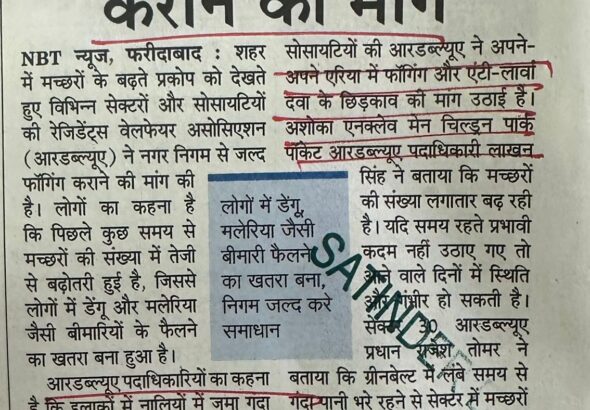 कराने की मांग
NBT न्यूज, फरीदाबाद : शहर
में मच्छरों के बढ़ते प्रकोप को देखते
हुए विभिन्न सेक्टरों और सोसायटियों
की रेजिडेंट्स वेलफेयर असोसिएशन
(आरडब्ल्यूए) ने नगर निगम से जल्द
फॉगिंग कराने की मांग की
है। लोगों का कहना है
कि पिछले कुछ समय से
मच्छरों की संख्या में तेजी
से बढ़ोतरी हुई है, जिससे
लोगों में डेंगू और मलेरिया
जैसी बीमारियों के फैलने
का खतरा बना हुआ है।
आरडब्ल्यूए पदाधिकारियों का कहना
है कि इलाकों में नालियों में जमा गंदा
लोगों में डेंगू,
मलेरिया जैसी
बीमारी फैलने
का खतरा बना,
निगम जल्द करे
समाधान
सोसायटियों की आरडब्ल्यूए ने अपने-
अपने एरिया में फॉगिंग और एंटी-लार्वा
दवा के छिड़काव की मांग उठाई है।
अशोका एनक्लेव मेन चिल्ड्रन पार्क
पॉकेट आरडब्ल्यूए पदाधिकारी लाखन
सिंह ने बताया कि मच्छरों
की संख्या लगातार बढ़ रही
है। यदि समय रहते प्रभावी
कदम नहीं उठाए गए तो
आने वाले दिनों में स्थिति
और गंभीर हो सकती है।
सेक्टर 30 आरडब्ल्यूए
प्रधान राजेश तोमर ने
बताया कि ग्रीनबेल्ट में लंबे समय से
गंदा पानी भरे रहने से सेक्टर में मच्छरों